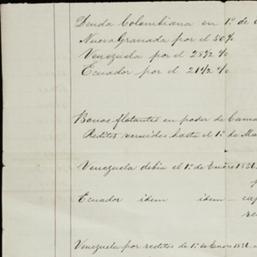 Deuda Colombiana en 1º. de
Nueva Granada por el 50 %
Venezuela por el 28 1/2 %
Ecuador por el 21 1/2 %
Bonos flotantes en poder de
Reditos vencidos hasta el 1º. de
Venezuela debia el 1º. de Enero
Ecuador idem idem
Venezuela por reditos de 1º. de Enero